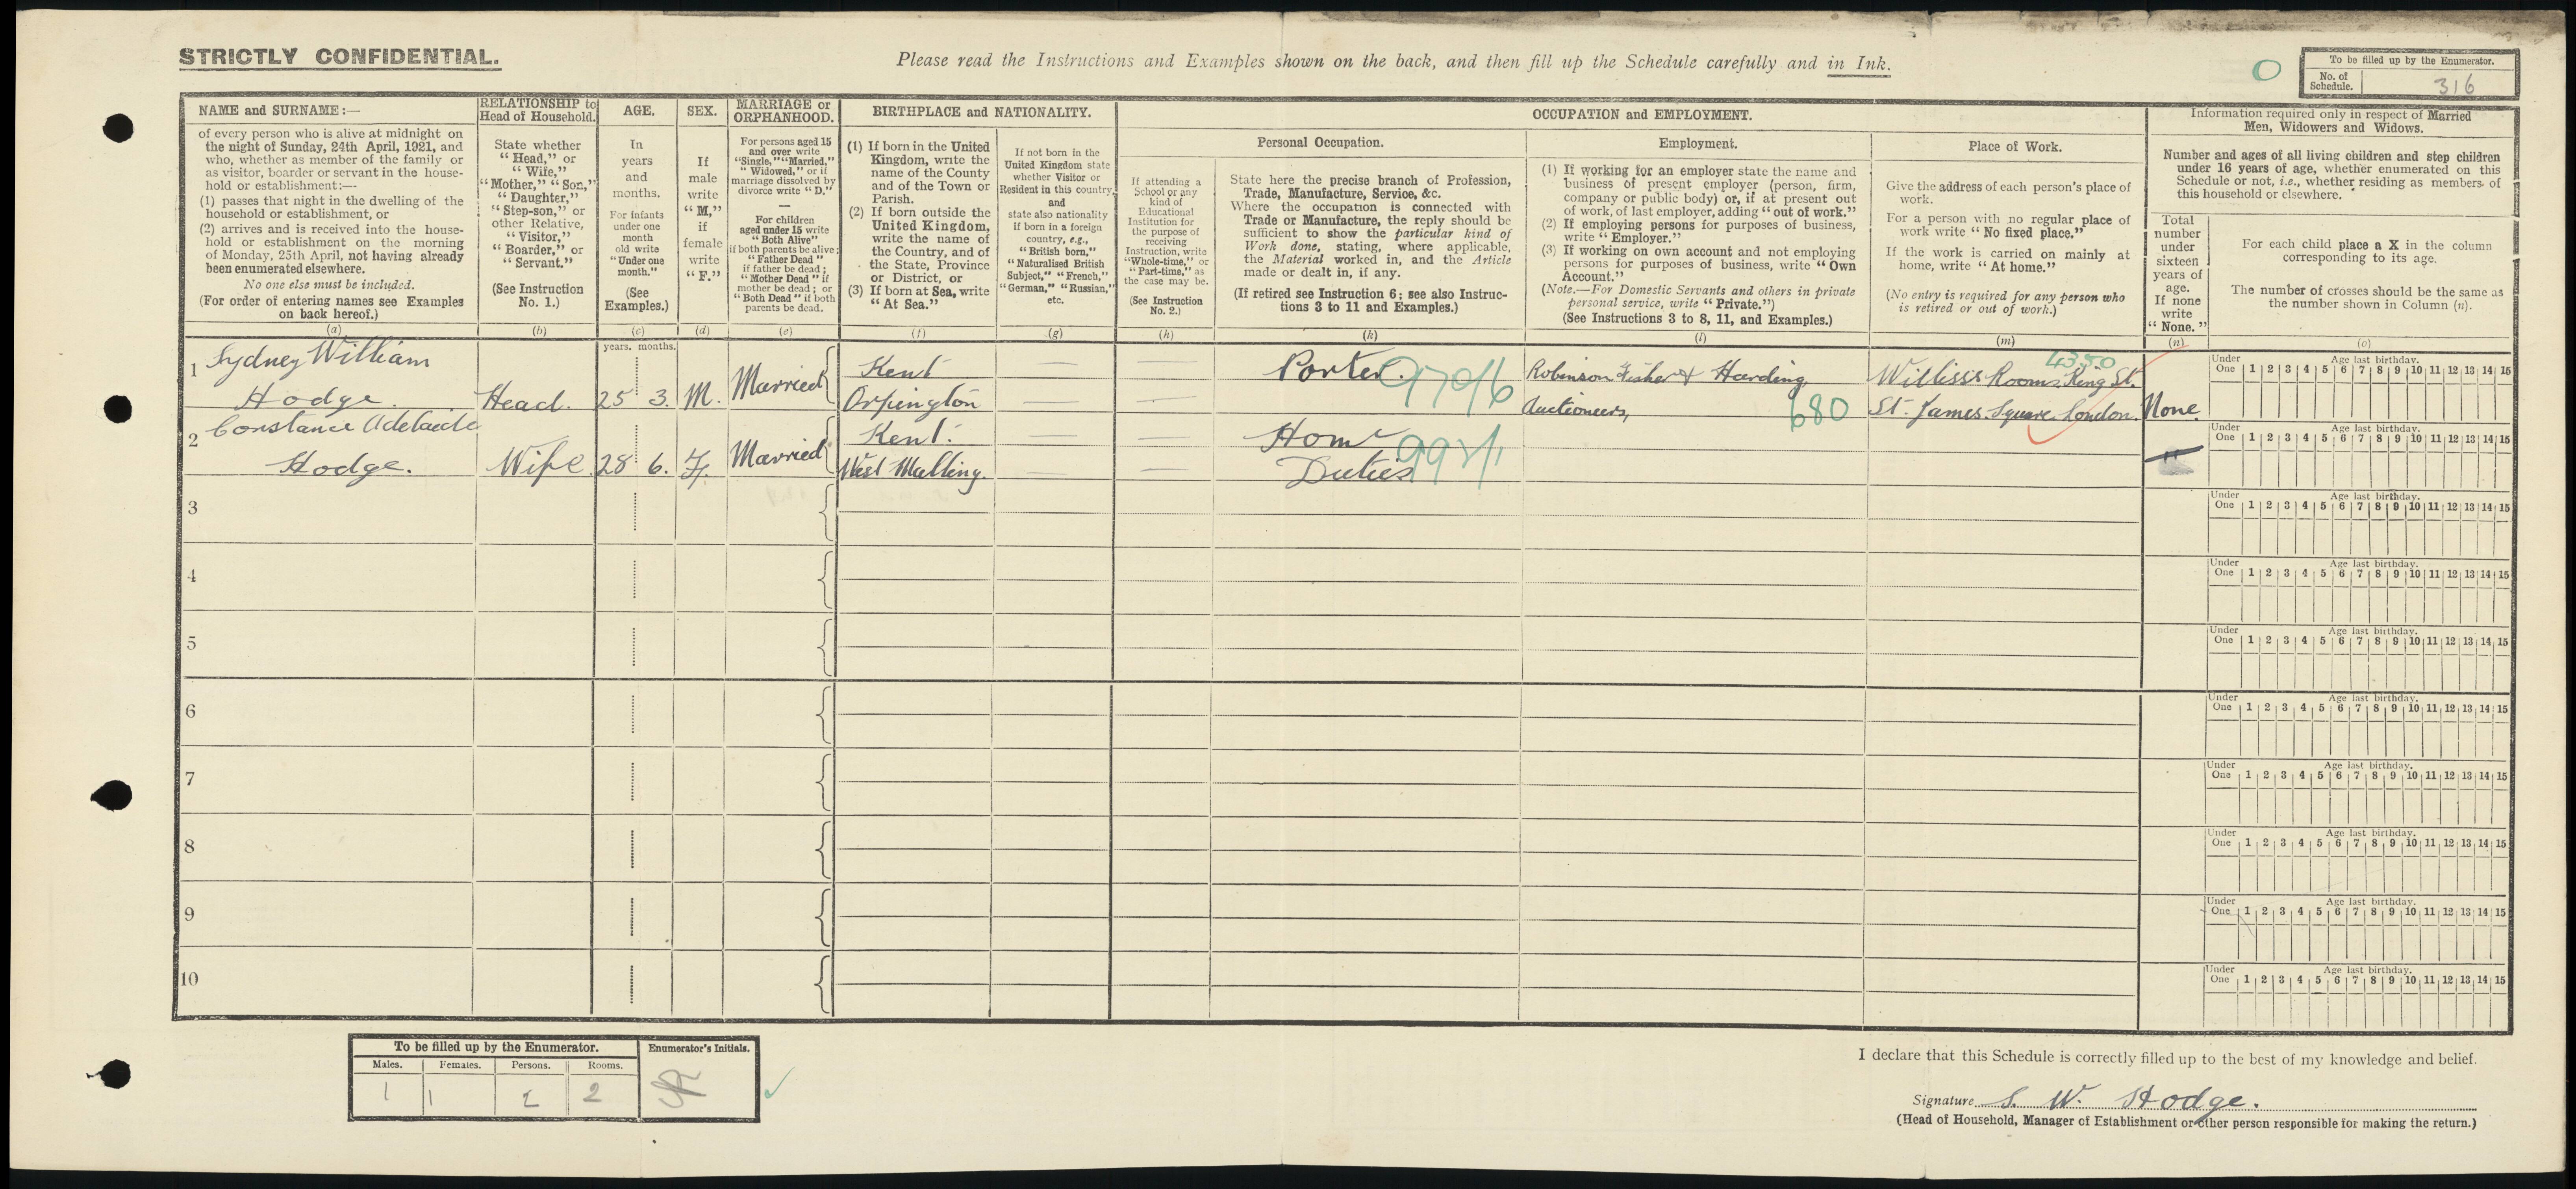 STRICTLY CONFIDENTIAL.
Please read the Instructions and Examples shown on the back, and then fill up the Schedule carefully and in Ink.
O
To be filled up by the Enumerator.
No. of Schedule. 316
NAME and SURNAME:—
of every person who is alive at midnight on
the night of Sunday, 24th April, 1921, and
who, whether as member of the family or
as visitor, boarder or servant in the house-
hold or establishment:—
(1) passes that night in the dwelling of the
household or establishment, or
(2) arrives and is received into the house-
hold or establishment on the morning
of Monday, 25th April, not having already
been enumerated elsewhere.
No one else must be included.
(For order of entering names see Examples
on back hereof.)
(a)
RELATIONSHIP to
Head of Household.
State whether
“Head,” or
“Wife,”
“Mother,” “Son,”
“Daughter,”
“Step-son,” or
other Relative,
“Visitor,”
“Boarder,” or
“Servant.”
(See Instruction
No. 1.)
(b)
AGE.
In
years
and
months.
For infants
under one
month
old write
“Under one
month.”
(See
Examples.)
(c)
SEX.
If
male
write
“M,”
if
female
write
“F.”
(d)
MARRIAGE or
ORPHANHOOD.
For persons aged 15
and over write
“Single,” “Married,”
“Widowed,” or if
marriage dissolved by
divorce write “D.”
—
For children
aged under 15 write
“Both Alive”
if both parents be alive;
“Father Dead”
if father be dead;
“Mother Dead” if
mother be dead; or
“Both Dead” if both
parents be dead.
(e)
BIRTHPLACE and NATIONALITY.
(1) If born in the United
Kingdom, write the
name of the County
and of the Town or
Parish.
(2) If born outside the
United Kingdom,
write the name of
the Country, and of
the State, Province
or District, or
(3) If born at Sea, write
“At Sea.”
(f)
If not born in the
United Kingdom state
whether Visitor or
Resident in this country,
and
state also nationality
if born in a foreign
country, e.g.,
“British born,”
“Naturalised British
Subject,” “French,”
“German,” “Russian,”
etc.
(g)
OCCUPATION and EMPLOYMENT.
Personal Occupation.
If attending a
School or any
kind of
Educational
Institution for
the purpose of
receiving
Instruction, write
“Whole-time,” or
“Part-time,” as
the case may be.
(See Instruction
No. 2.)
(h)
State here the precise branch of Profession,
Trade, Manufacture, Service, &c.
Where the occupation is connected with
Trade or Manufacture, the reply should be
sufficient to show the particular kind of
Work done, stating, where applicable,
the Material worked in, and the Article
made or dealt in, if any.
(If retired see Instruction 6; see also Instruc-
tions 3 to 11 and Examples.)
(k)
Employment.
(1) If working for an employer state the name and
business of present employer (person, firm,
company or public body) or, if at present out
of work, of last employer, adding “out of work.”
(2) If employing persons for purposes of business,
write “Employer.”
(3) If working on own account and not employing
persons for purposes of business, write “Own
Account.”
(Note.—For Domestic Servants and others in private
personal service, write “Private.”)
(See Instructions 3 to 8, 11, and Examples.)
(l)
Place of Work.
Give the address of each person’s place of
work.
For a person with no regular place of
work write “No fixed place.”
If the work is carried on mainly at
home, write “At home.”
(No entry is required for any person who
is retired or out of work.)
(m)
Information required only in respect of Married
Men, Widowers and Widows.
Number and ages of all living children and step children
under 16 years of age, whether enumerated on this
Schedule or not, i.e., whether residing as members of
this household or elsewhere.
Total
number
under
sixteen
years of
age.
If none
write
“None.”
(n)
For each child place a X in the column
corresponding to its age.
The number of crosses should be the same as
the number shown in Column (n).
(o)
years. months.
1 Sydney William
Hodge. Head. 25 3. M. Married Kent
Orpington
Porter. 970/6
Robinson Fisher & Harding,
Auctioneers, 680
4350
Willis's Rooms, King St.
St. James Square London. None
Under One 1 2 3 4 5 6 7 8 9 10 11 12 13 14 15
Age last birthday.
2 Constance Adelaide
Hodge. Wife 28 6. F. Married Kent.
West Malling.
Home
Duties
Under One 1 2 3 4 5 6 7 8 9 10 11 12 13 14 15
Age last birthday.
3
Under One 1 2 3 4 5 6 7 8 9 10 11 12 13 14 15
Age last birthday.
4
Under One 1 2 3 4 5 6 7 8 9 10 11 12 13 14 15
Age last birthday.
5
Under One 1 2 3 4 5 6 7 8 9 10 11 12 13 14 15
Age last birthday.
6
Under One 1 2 3 4 5 6 7 8 9 10 11 12 13 14 15
Age last birthday.
7
Under One 1 2 3 4 5 6 7 8 9 10 11 12 13 14 15
Age last birthday.
8
Under One 1 2 3 4 5 6 7 8 9 10 11 12 13 14 15
Age last birthday.
9
Under One 1 2 3 4 5 6 7 8 9 10 11 12 13 14 15
Age last birthday.
10
Under One 1 2 3 4 5 6 7 8 9 10 11 12 13 14 15
Age last birthday.
To be filled up by the Enumerator.
Enumerator's Initials.
Males. Females. Persons. Rooms.
1 1 2 2
I declare that this Schedule is correctly filled up to the best of my knowledge and belief.
Signature S. W. Hodge.
(Head of Household, Manager of Establishment or other person responsible for making the return.)